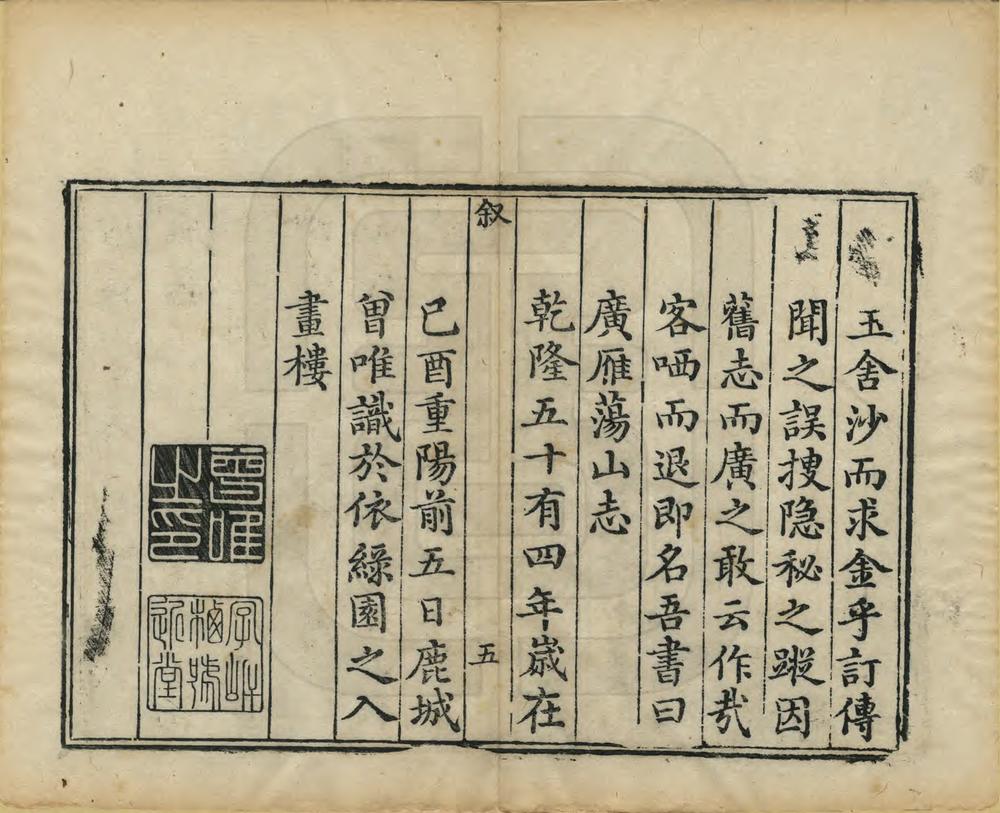 玉舍沙而求金乎訂傳
聞之誤搜隐秘之蹤因
舊志而廣之敢云作㦲
客哂而退即名吾書曰
廣雁蕩山志
乾隆五十有四年嵗在
叙
五
已酉重陽前五日鹿城
曾唯識於依綠園之入
畫樓
曾唯
之印
字岵
梅號
近堂